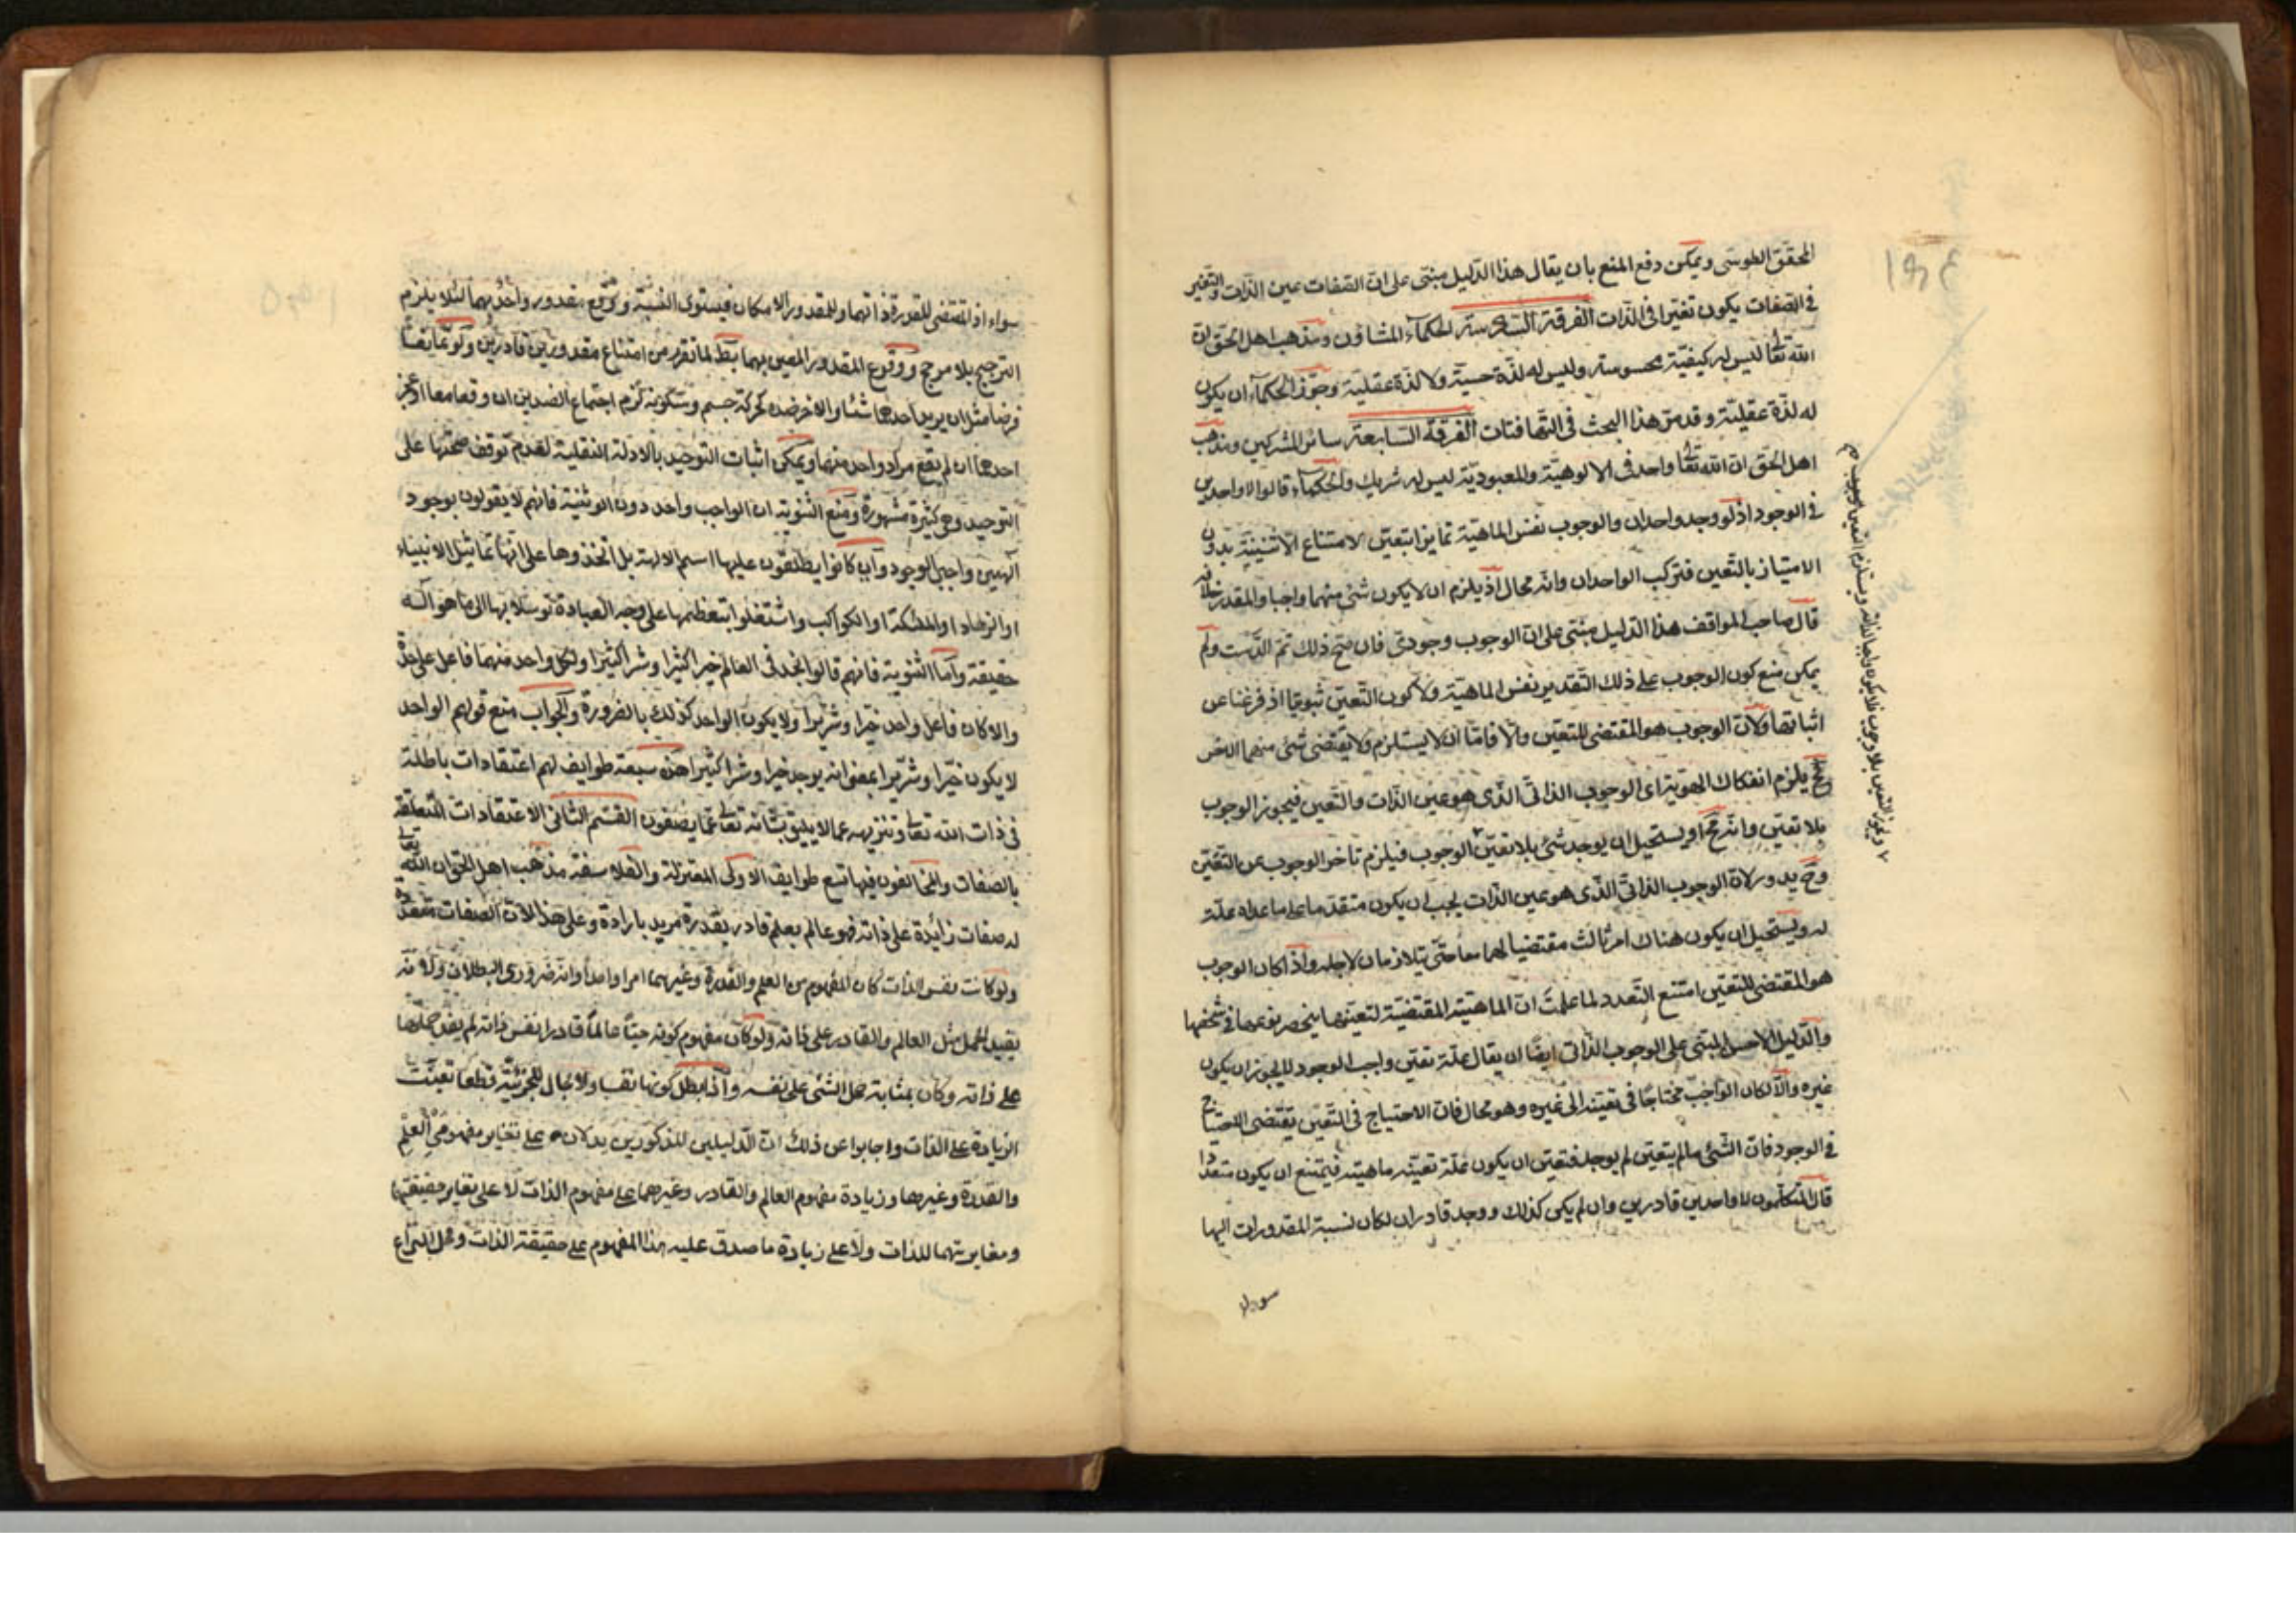 المحقق الطوسى ويمكن دفع المنع بان يقال هذا الدليل مبنى على ان الصفات عين الذات والتغير
فى الصفات يكون تغيرا فى الذات الفرقة السادسة الحكماء المشاؤن ومذهب اهل الحق ان
الله تعالى ليس له كيفية محسوسة وليس له لذة حسية ولا لذة عقلية وجوز الحكماء ان يكون
له لذة عقلية وقد مر هذا البحث فى التهافتات الفرقة السابعة سائر المشركين ومذهب
اهل الحق ان الله تعالى واحد فى الالوهية والمعبودية ليس له شريك والحكماء قالوا لا واحدين
فى الوجود اذ لو وجد واحدان والوجوب نفس الماهية تمايزا بتعين لامتناع الاثنينية بدون
الامتياز بالتعين فتركب الواحدان وانه محال اذ يلزم ان لا يكون شئ منهما واجبا والمقدر خلافه
قال صاحب المواقف هذا الدليل مبنى على ان الوجوب وجودى فان صح ذلك تم الدست ولم
يمكن منع كون الوجوب على ذلك التقدير نفس الماهية ولا كون التعين ثبوتيا اذ فرغنا عن
اثباتها ولان الوجوب هو المقتضى للتعين والا فاما ان لا يستلزم ولا يقتضى شئ منهما الاخر
وح يلزم انفكاك الهوية اى الوجوب الذاتى الذى هو عين الذات والتعين فيجوز الوجوب
بلا تعين وانه مح او يستحيل ان يوجد شئ بلا تعين الوجوب فيلزم تاخر الوجوب عن التعين
وح يدور لان الوجوب الذاتى الذى هو عين الذات يجب ان يكون متقدما على ما عداه علة
له ويستحيل ان يكون هناك امر ثالث مقتضيا لهما معا حتى يتلازمان لاجله واذا كان الوجوب
هو المقتضى للتعين امتنع التعدد لما علمت ان الماهية المقتضية لتعينها ينحصر نوعها فى شخصها
والدليل الاحسن المبنى على الوجوب الذاتى ايضا ان يقال علة تعين واجب الوجود لا يجوز ان يكون
غيره والا لكان الواجب محتاجا فى تعينه الى غيره وهو محال فان الاحتياج فى التعين يقتضى الاحتياج
فى الوجود فان الشئ مالم يتعين لم يوجد فتعين ان يكون علة تعينه ماهيته فيمتنع ان يكون متعددا
قال المتكلمون لا واحدين قادرين وان لم يكن كذلك ووجد قادران لكان نسبة المقدورات اليهما
سواء
ويجوز التعين بلا وجوب فلا يكون واجبا لذاته ويستلزم التعين الوجوب
سواء اذ المقتضى للقدرة ذاتهما وللمقدور الامكان فيستوى النسبة ووقوع مقدور واحد بهما لئلا يلزم
الترجيح بلا مرجح ووقوع المقدور المعين بهما بط لما تقرر من امتناع مقدور بين قادرين ولو تمانعا
فرضا مثل ان يريد احدهما شئا والاخر ضده كحركة جسم وسكونه لزم اجتماع الضدين ان وقعا معا او عجز
احدهما ان لم يقع مراد واحد منهما ويمكن اثبات التوحيد بالادلة النقلية لعدم توقف صحتها على
التوحيد وهى كثيرة مشهورة ومنع الثنوية ان الواجب واحد دون الوثنية فانهم لا يقولون بوجود
الهين واجبى الوجود وان كانوا يطلقون عليها اسم الالهة بل اتخذوها على انها تماثيل الانبياء
او الزهاد او الملئكة او الكواكب واشتغلوا بتعظيمها على وجه العبادة توسلا بها الى ما هو اله
حقيقة واما الثنوية فانهم قالوا نجد فى العالم خيرا كثيرا وشرا كثيرا ولكل واحد منهما فاعل على حدة
والا كان فاعل واحد خيرا وشريرا ولا يكون الواحد كذلك بالضرورة والجواب منع قولهم الواحد
لا يكون خيرا وشريرا بمعنى انه يوجد خيرا وشرا كثيرا هذه سبعة طوايف لهم اعتقادات باطلة
فى ذات الله تعالى وتنزيهه عما لا يليق بشانه تعالى عما يصفون القسم الثانى الاعتقادات المتعلقة
بالصفات والمخالفون فيها تسع طوايف الاولى المعتزلة والفلاسفة مذهب اهل الحق ان الله تعالى
له صفات زائدة على ذاته فهو عالم بعلم قادر بقدرة مريد بارادة وعلى هذا لان الصفات متعددة
ولو كانت نفس الذات كان المفهوم من العلم والقدرة وغيرهما امرا واحدا وانه ضرورى البطلان ولانه
يفيد الحمل مثل العالم والقادر على ذاته ولو كان مفهوم كونه حيا عالما قادرا نفس ذاته لم يفد حملها
على ذاته وكان بمثابة حمل الشئ على نفسه واذا بطل كونها نفسا ولا مجال للجزئية قطعا تعينت
الزيادة على الذات واجابوا عن ذلك ان الدليلين المذكورين يدلان على تغاير مفهومى العلم
والقدرة وغيرهما وزيادة مفهوم العالم والقادر وغيرهما على مفهوم الذات لا على تغاير حقيقتهما
ومغايرتهما للذات ولا على زيادة ما صدق عليه هذا المفهوم على حقيقة الذات ومحل النزاع